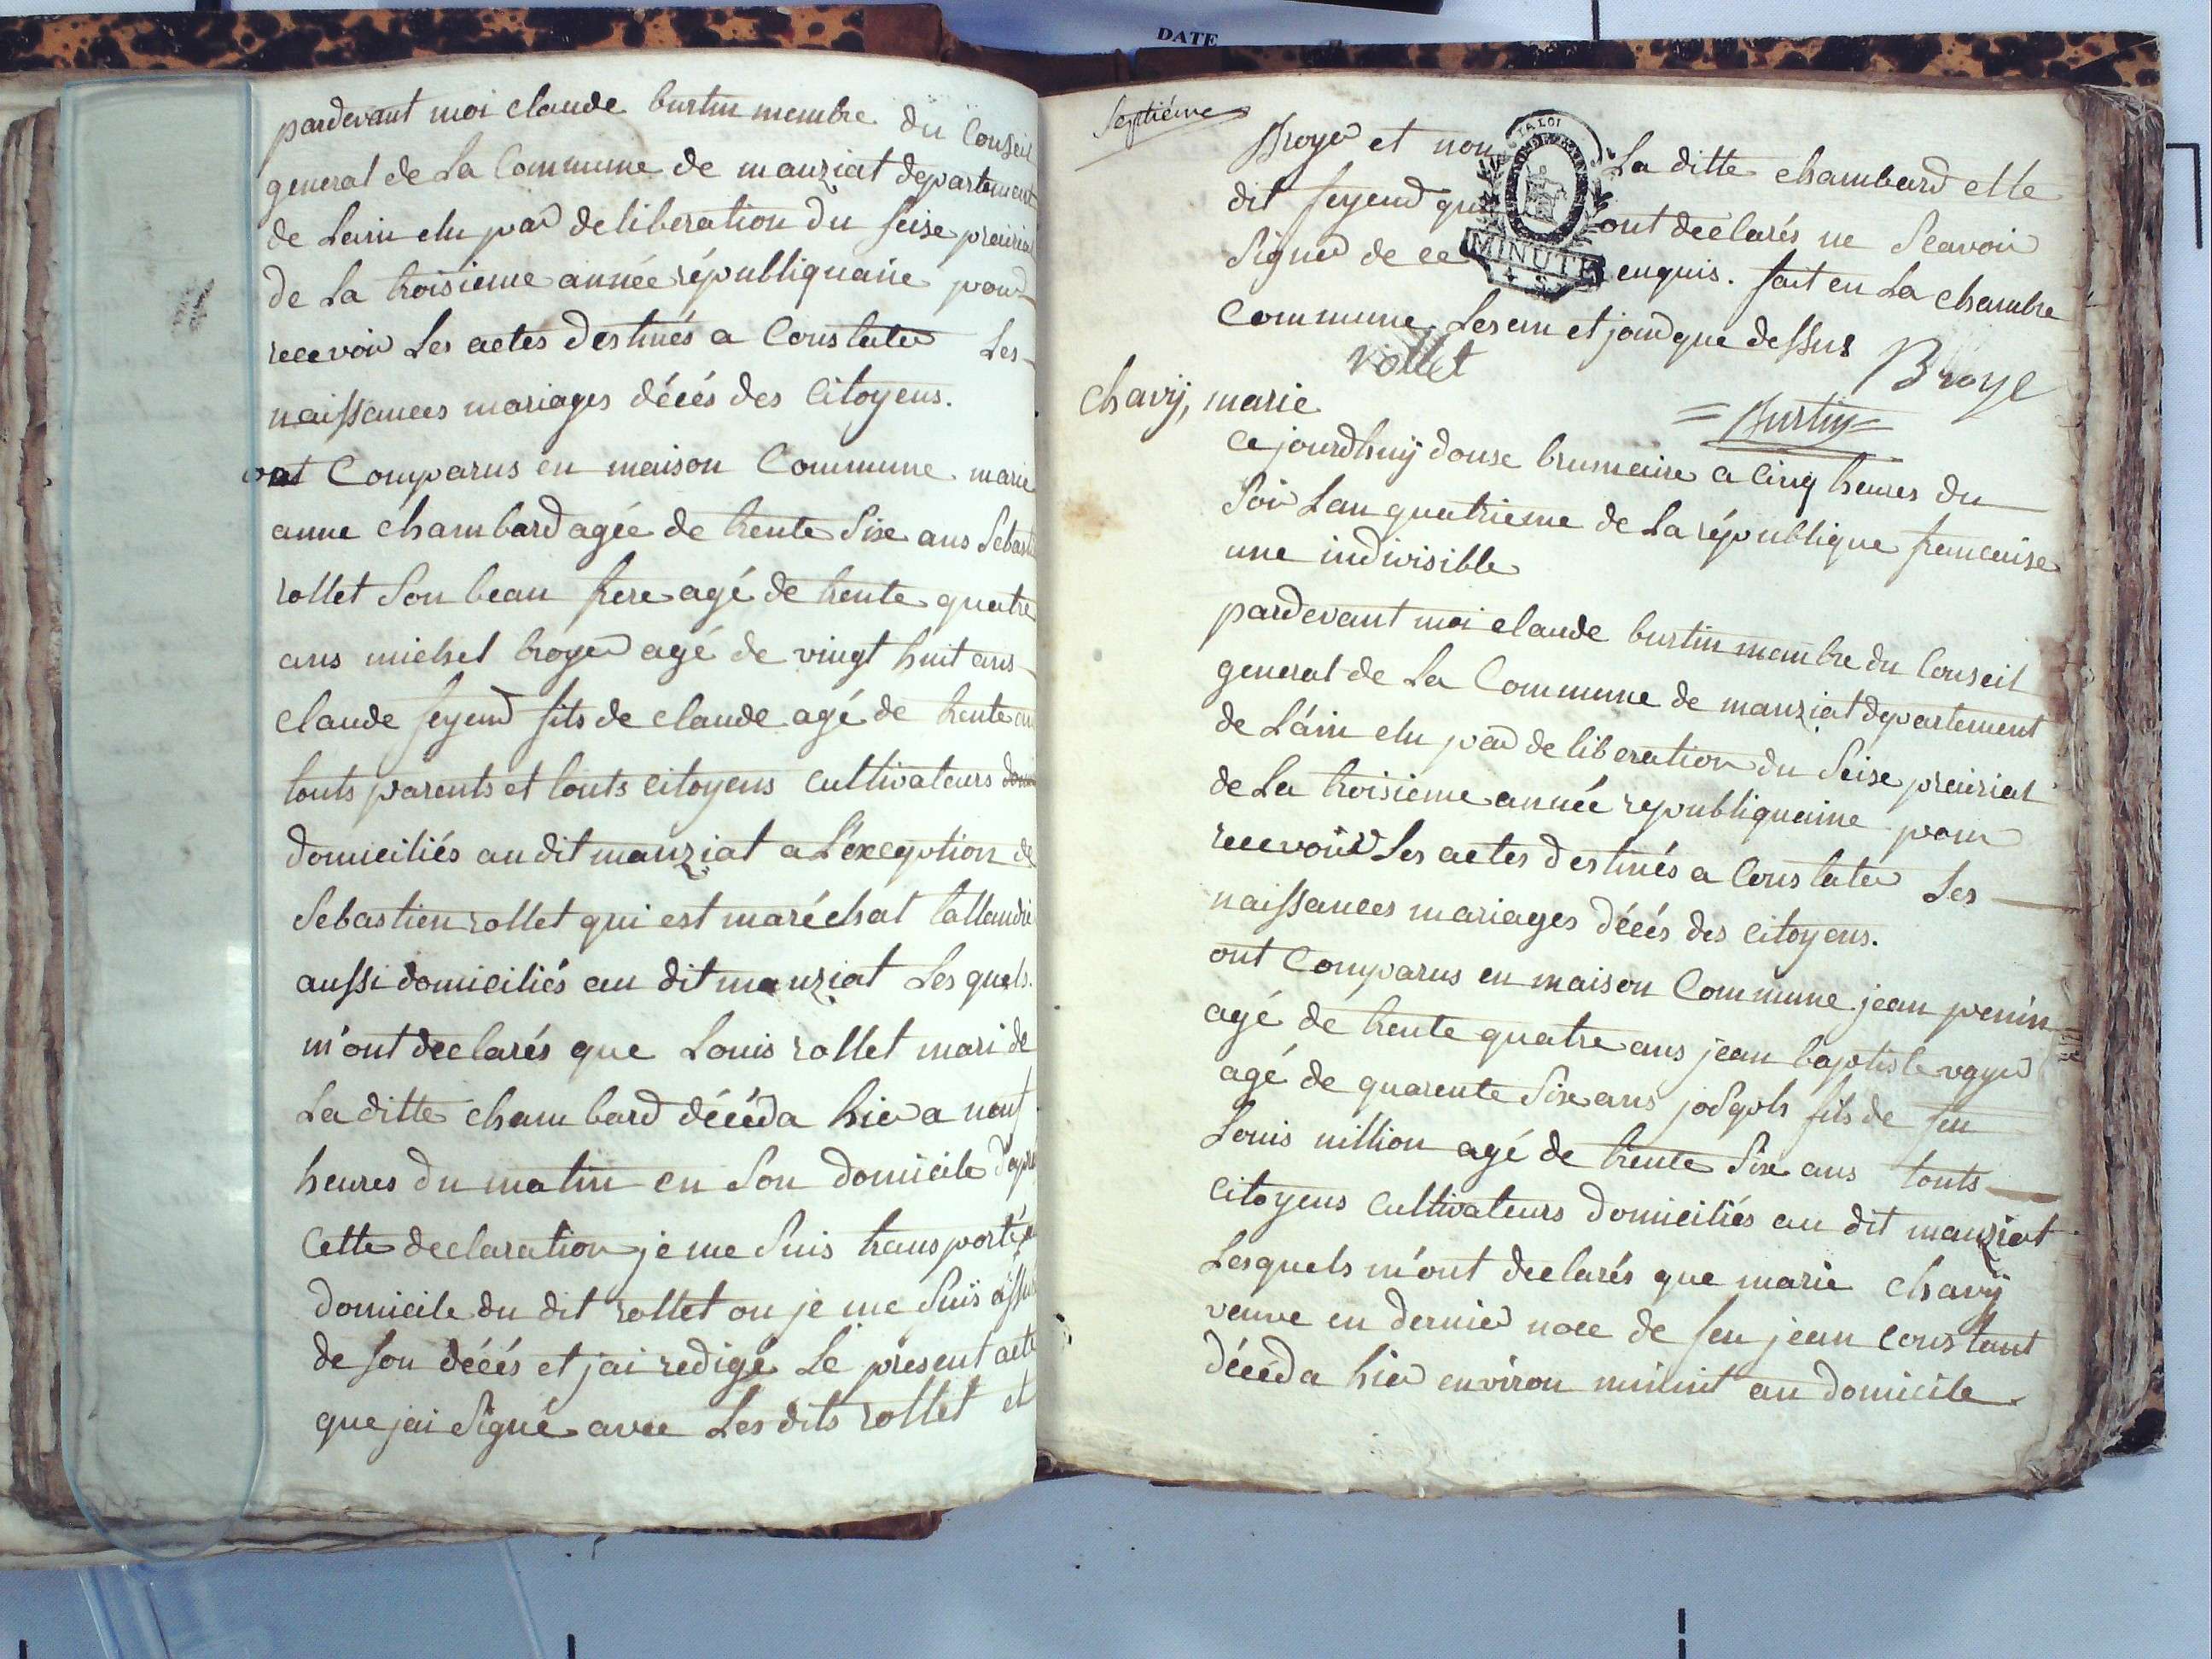 DATE
pardevant moi claude burtin membre du Conseil
general de La Commune de manziat departement
de Lain elu par deliberation du seise prairial
de La troisieme année républiquaine pour
recevoir Les actes destinés a Constater Les
naissances mariages décés des Citoyens.
ont Comparus en maison Commune marie
anne chambard agée de trente six ans Sebastien
rollet Son beau frere agé de trente quatre
ans michel broyer agé de vingt huit ans
claude feyeud fils de claude agé de trente ans
touts parents et touts citoyens cultivateurs
domiciliés au dit manziat a L'exception de
Sebastien rollet qui est maréchal tallandie
aussi domiciliés au dit manziat Les quels
m'ont declarés que Louis rollet mari de
La ditte chambard décéda hier a neuf
heures du matin en Son domicile d'apré
Cette declaration je me Suis transporté au
domicile du dit rollet ou je me Suis assuré
de son décés et jai redigé Le présent acte
que jai Signé avec Les dits rollet et
Septiéme
Broyer et non La ditte chambard et le
dit feyeud qui ont declarés ne Scavoir
Signer de ce enquis. fait en La chambre
LA LOI
MINUTE
Commune Les an et jour que dessus
rollet
Broye
Burtin
Chavÿ, marie
Ce jourdhuÿ douse brumaire a Cinq heures du
Soir Lan quatrieme de La république francaise
une indivisible
pardevant moi claude burtin membre du Conseil
general de La Commune de manziat departement
de L'ain elu par deliberation du Seise prairial
de La troisieme année republiquaine pour
recevoir Les actes destinés a Constater Les
naissances mariages décés des citoyens.
ont Comparus en maison Commune jean penin
agé de trente quatre ans jean baptiste voyer
agé de quarente Six ans josqph fils de feu
Louis million agé de trente Six ans touts
Citoyens Cultivateurs domiciliés au dit manziat
Lesquels m'ont declarés que marie chavÿ
veuve en dernier noce de feu jean Constant
décéda hier environ minuit au domicile